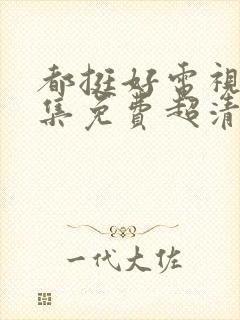 都挺好电视
集免费超清
一代大佐